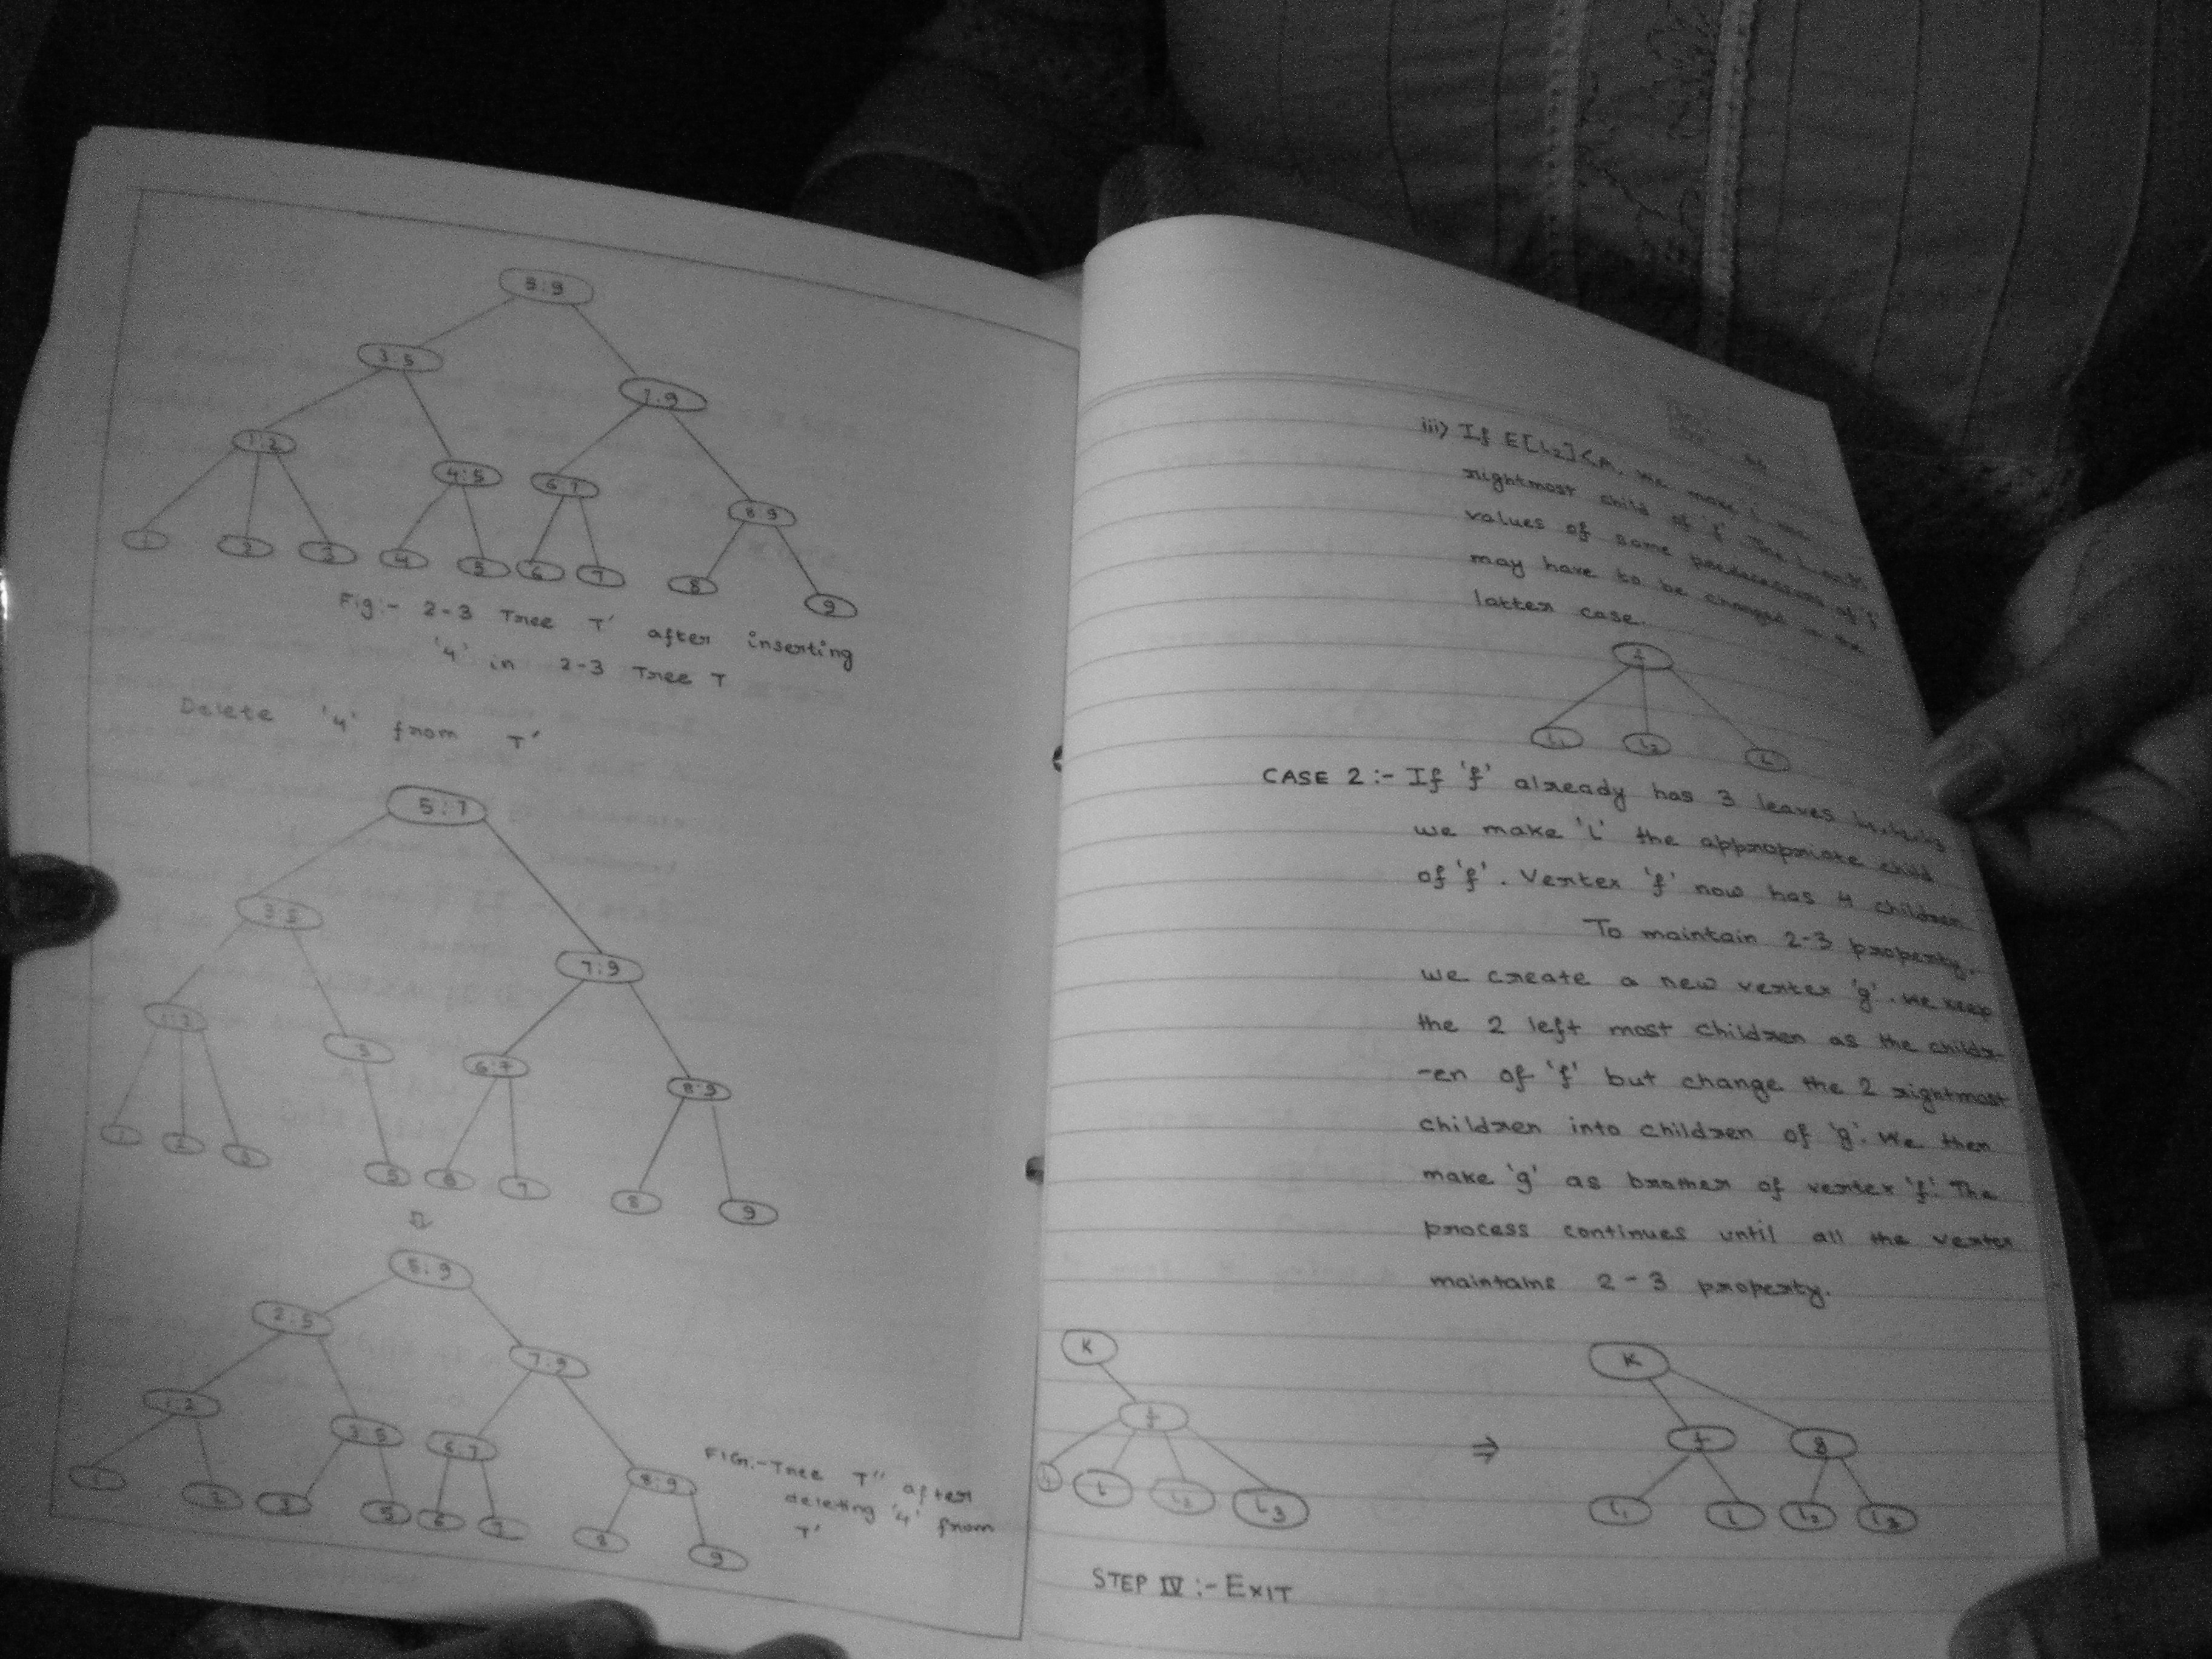 5:9
3:5
7:9
1:2
4:5
6:7
8:9
1 2 3 4 5 6 7 8 9
Fig:- 2-3 Tree T' after inserting
'4' in 2-3 Tree T
Delete '4' from T'
5:7
3:5
7:9
1:2
5
6:7
8:9
1 2 3 5 6 7 8 9
5:9
2:5
7:9
1:2
3:5
6:7
8:9
1 2 3 5 6 7 8 9
FIG:-Tree T" after
deleting '4' from
T'
iii) If E[L2]<A, we make L
rightmost child of f. The L and M
values of some predecessors of f
may have to be changed in the
latter case.
f
L1 L2 L
CASE 2:- If 'f' already has 3 leaves
we make 'L' the appropriate child
of 'f'. Vertex 'f' now has 4 children
To maintain 2-3 property,
we create a new vertex 'g'. We keep
the 2 left most children as the childr-
-en of 'f' but change the 2 rightmost
children into children of 'g'. We then
make 'g' as brother of vertex 'f'. The
process continues until all the vertex
maintains 2-3 property.
K
f
L L2 L3
⇒
K
f g
L1 L L2 L3
STEP IV :- EXIT